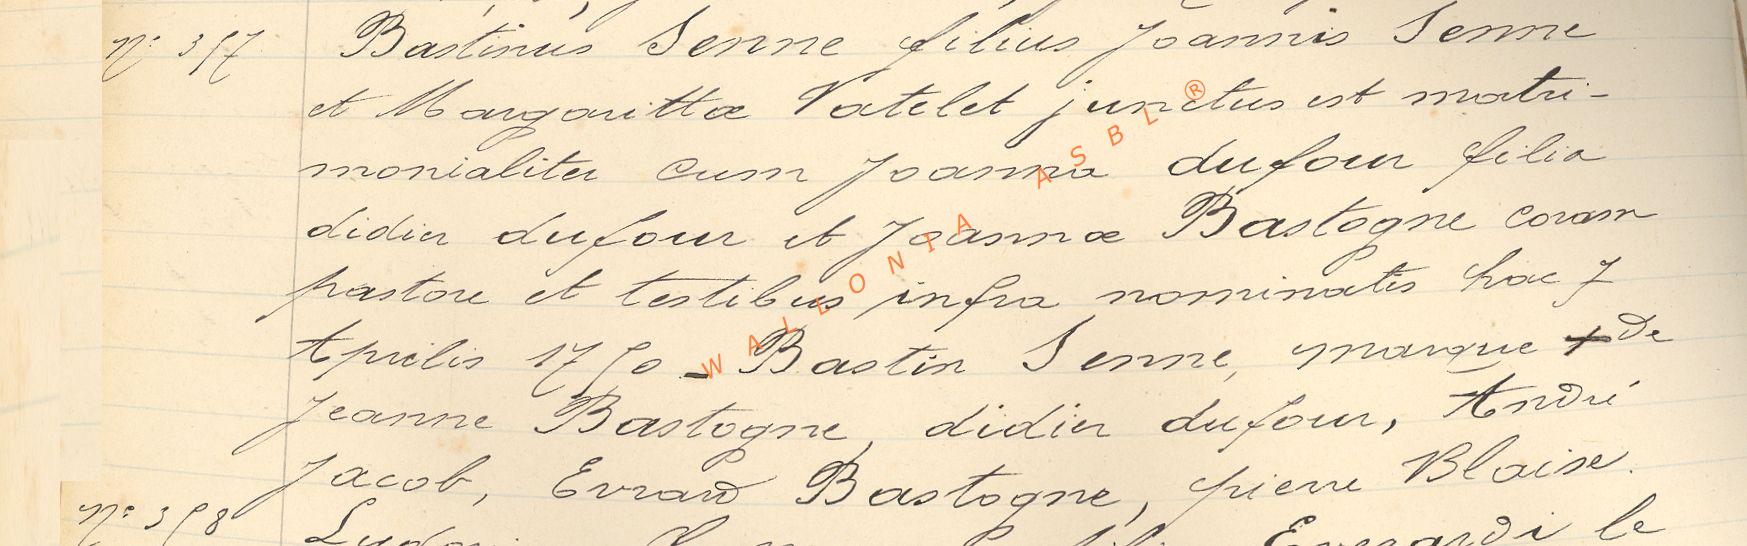 N° 357 Bastinus Senne filius Joannis Senne
et Margarittæ Vatelet junctus est matri-
monialiter cum Joanna dufour filia
didier dufour et Joannæ Bastogne coram
pastore et testibus infra nominatis hac 7
Aprilis 1750 - Bastin Senne, marque + de
Jeanne Bastogne, didier dufour, André
Jacob, Evrard Bastogne, pierre Blaise.
N° 358 Everardi le
WALLONIA ASBL ®